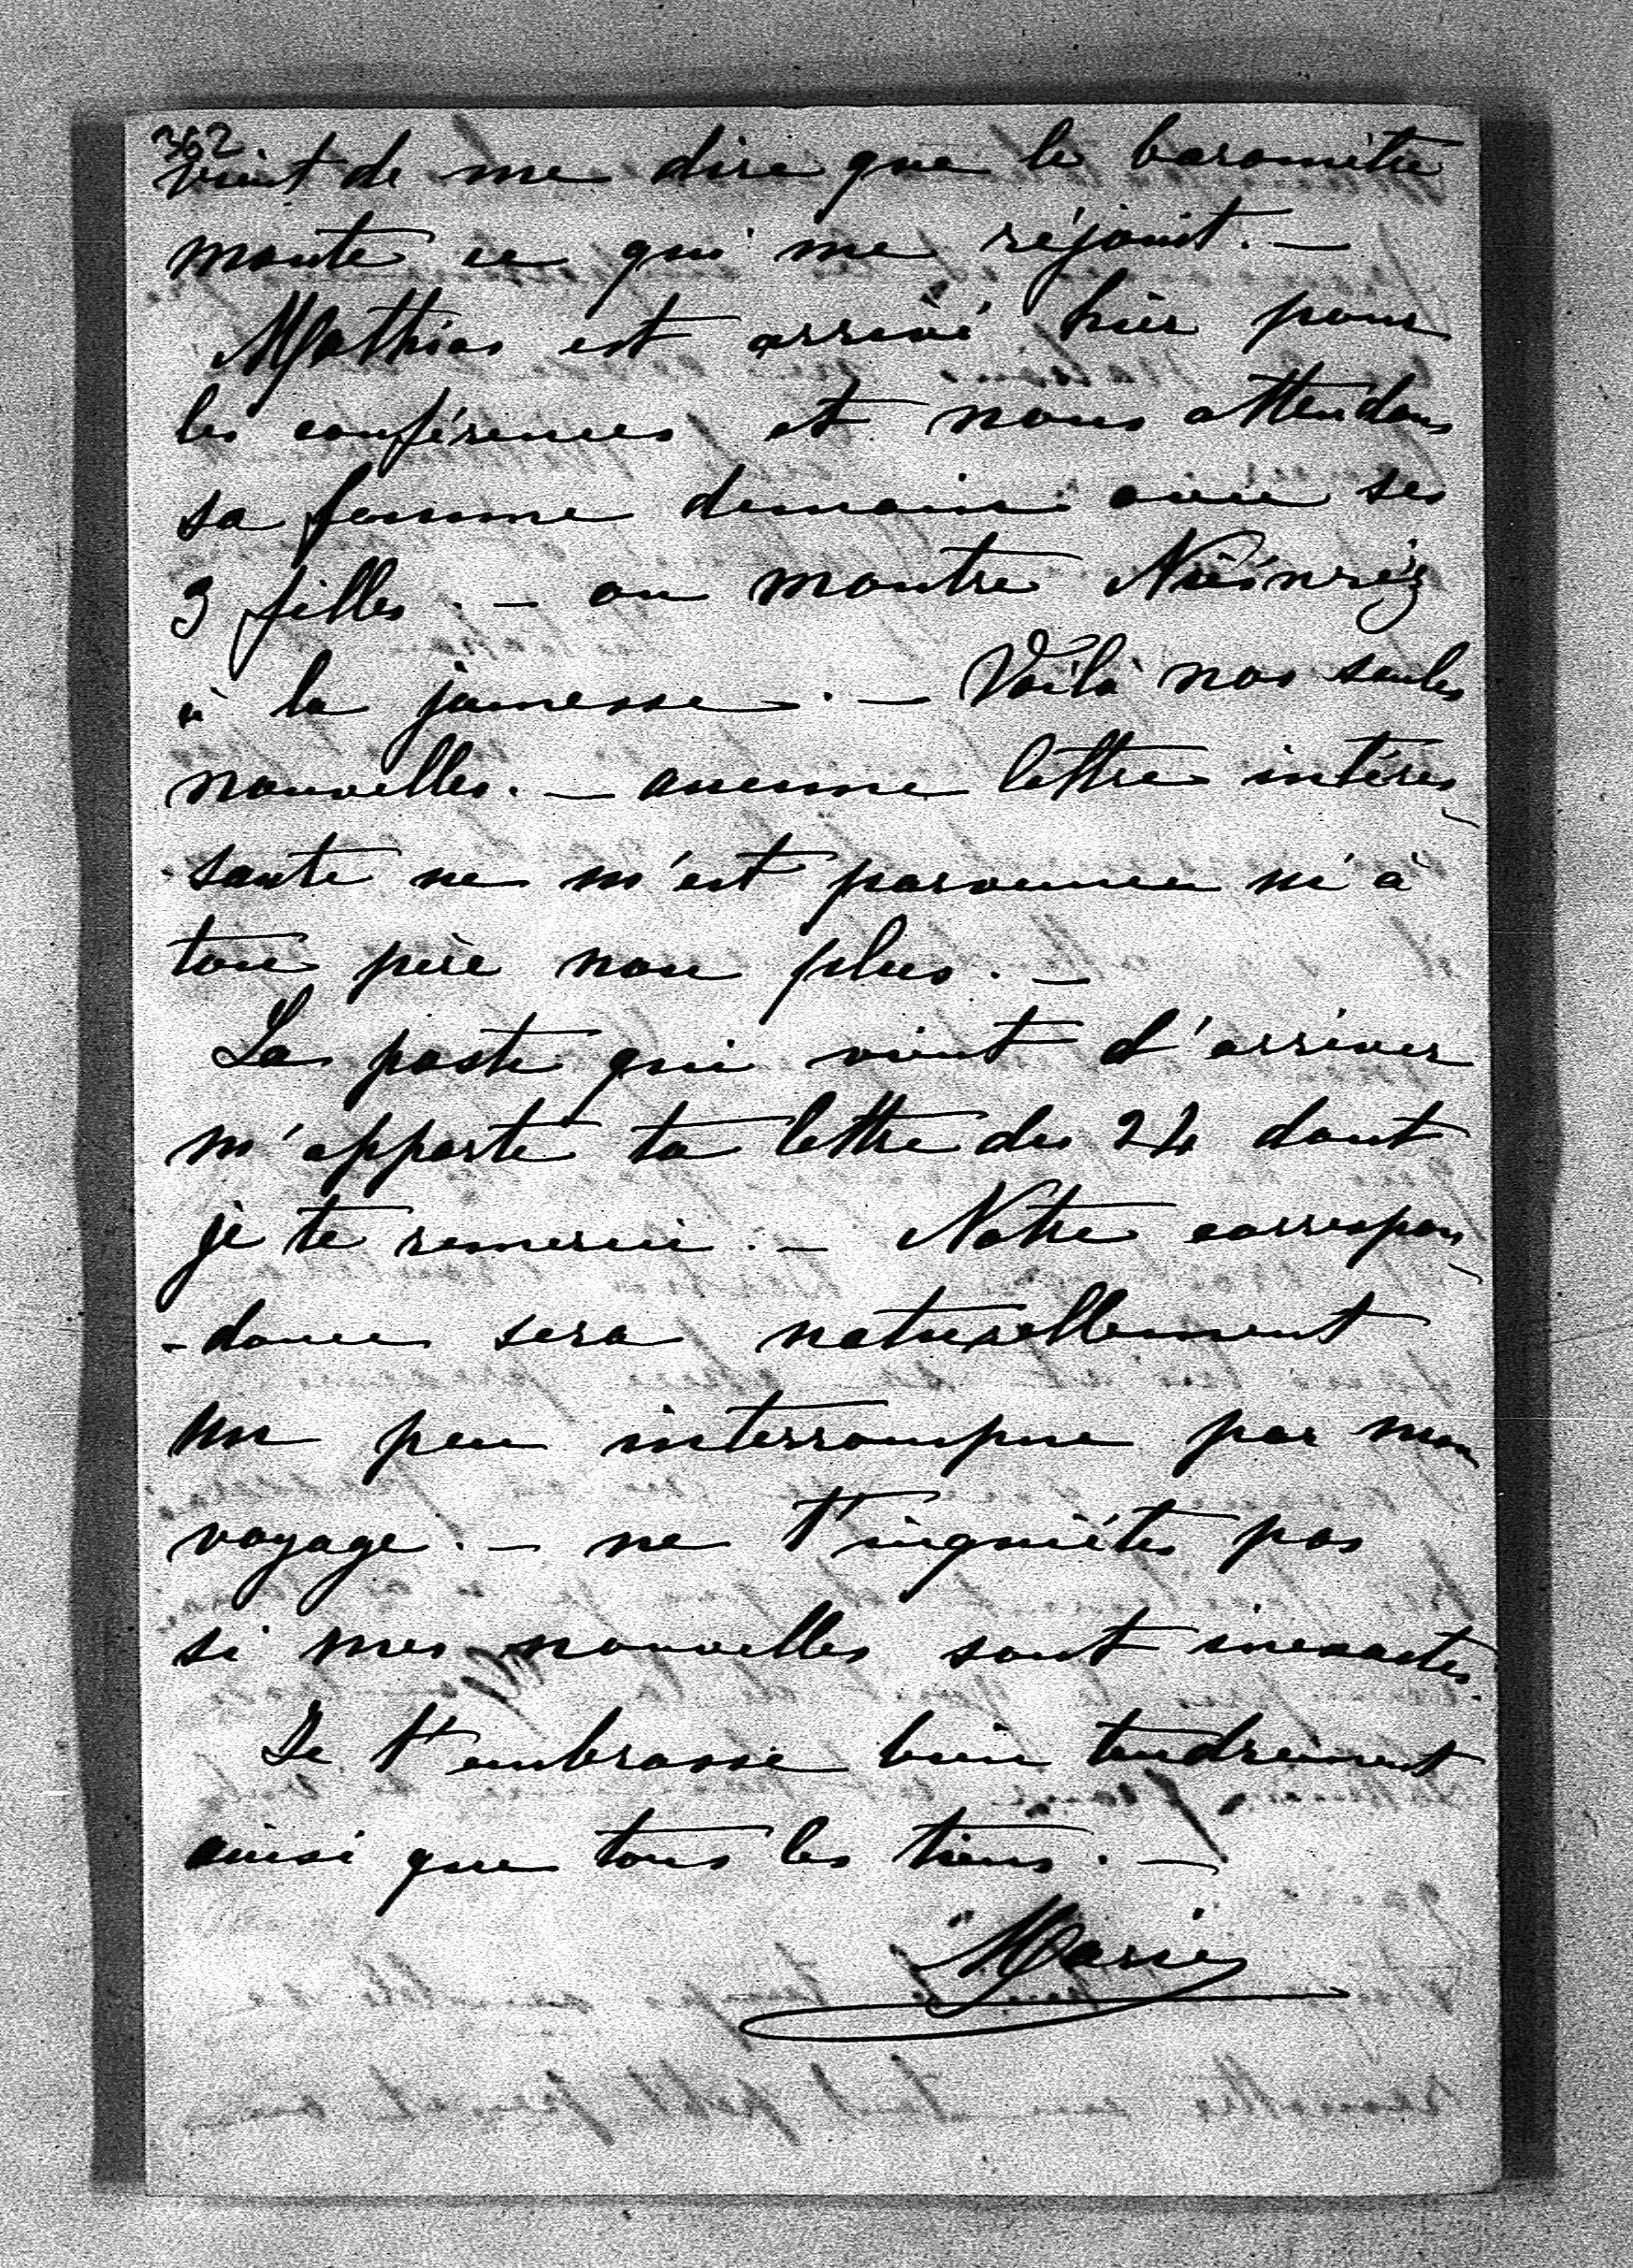 362
vient de me dire que le baromètre
monte ce qui me réjouit. —
Mathias est arrivé hier pour
les conférences et nous attendons
sa femme demain avec ses
3 filles. — on montre
à la jeunesse. — Voilà nos seules
nouvelles. — aucune lettre intéres-
-sante ne m'est parvenue ni à
ton père non plus. —
La poste qui vient d'arriver
m'apporte ta lettre du 24 dont
je te remercie. — Notre correspon-
-dance sera naturellement
un peu interrompue par mon
voyage. — ne t'inquiètes pas
si mes nouvelles sont inexactes.
Je t'embrasse bien tendrement
ainsi que tous les tiens. —
Marie